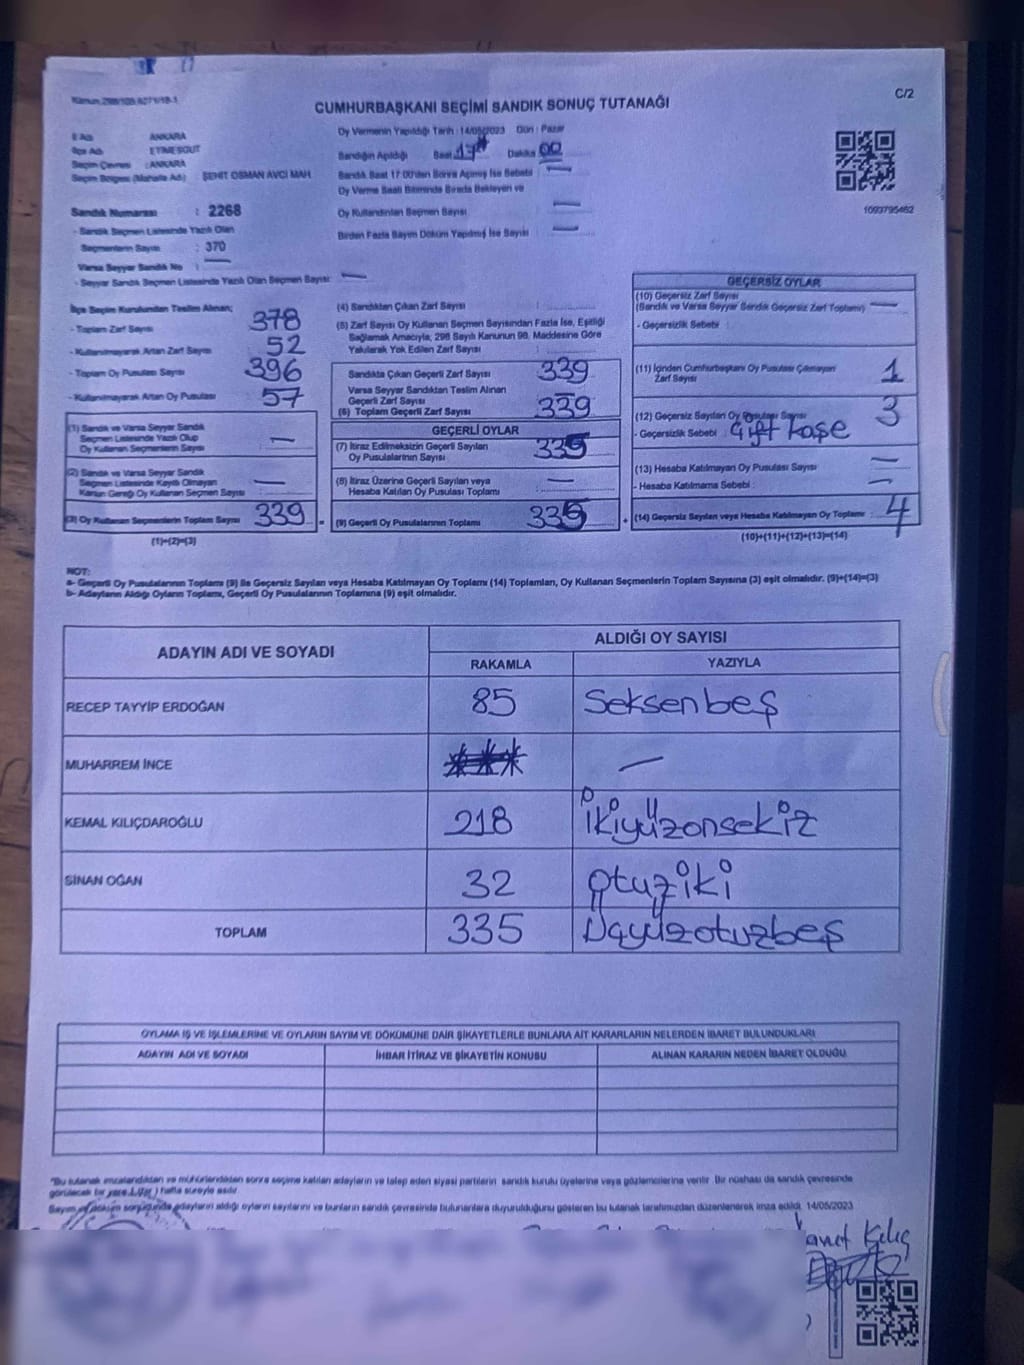 C/2
CUMHURBAŞKANI SEÇİMİ SANDIK SONUÇ TUTANAĞI
İl Adı ANKARA
İlçe Adı ETİMESGUT
Seçim Çevresi : ANKARA
Seçim Bölgesi (Mahalle Adı) : ŞEHİT OSMAN AVCI MAH
Sandık Numarası : 2268
- Sandık Seçmen Listesinde Yazılı Olan
Seçmenlerin Sayısı : 370
Varsa Seyyar Sandık No : —
- Seyyar Sandık Seçmen Listesinde Yazılı Olan Seçmen Sayısı: —
Oy Vermenin Yapıldığı Tarih : 14/05/2023 Gün : Pazar
Sandığın Açıldığı Saat 17 Dakika 00
Sandık Saat 17:00'den Sonra Açılmış İse Sebebi —
Oy Verme Saati Bitiminde Sırada Bekleyen ve
Oy Kullandırılan Seçmen Sayısı —
Birden Fazla Sayım Döküm Yapılmış İse Sayısı —
1093795462
İlçe Seçim Kurulundan Teslim Alınan;
- Toplam Zarf Sayısı 378
- Kullanılmayarak Artan Zarf Sayısı 52
- Toplam Oy Pusulası Sayısı 396
- Kullanılmayarak Artan Oy Pusulası 57
(1) Sandık ve Varsa Seyyar Sandık
Seçmen Listesinde Yazılı Olup
Oy Kullanan Seçmenlerin Sayısı —
(2) Sandık ve Varsa Seyyar Sandık
Seçmen Listesinde Kayıtlı Olmayan
Kanun Gereği Oy Kullanan Seçmen Sayısı —
(3) Oy Kullanan Seçmenlerin Toplam Sayısı 339 =
(1)+(2)=(3)
(4) Sandıktan Çıkan Zarf Sayısı :
(5) Zarf Sayısı Oy Kullanan Seçmen Sayısından Fazla İse, Eşitliği
Sağlamak Amacıyla, 298 Sayılı Kanunun 98. Maddesine Göre
Yakılarak Yok Edilen Zarf Sayısı :
Sandıkta Çıkan Geçerli Zarf Sayısı 339
Varsa Seyyar Sandıktan Teslim Alınan
Geçerli Zarf Sayısı
(6) Toplam Geçerli Zarf Sayısı 339
GEÇERLİ OYLAR
(7) İtiraz Edilmeksizin Geçerli Sayılan
Oy Pusulalarının Sayısı 335
(8) İtiraz Üzerine Geçerli Sayılan veya
Hesaba Katılan Oy Pusulası Toplamı —
(9) Geçerli Oy Pusulalarının Toplamı 335 +
GEÇERSİZ OYLAR
(10) Geçersiz Zarf Sayısı
(Sandık ve Varsa Seyyar Sandık Geçersiz Zarf Toplamı) —
- Geçersizlik Sebebi :
(11) İçinden Cumhurbaşkanı Oy Pusulası Çıkmayan
Zarf Sayısı 1
(12) Geçersiz Sayılan Oy Pusulası Sayısı 3
- Geçersizlik Sebebi : Çift kaşe
(13) Hesaba Katılmayan Oy Pusulası Sayısı —
- Hesaba Katılmama Sebebi : —
(14) Geçersiz Sayılan veya Hesaba Katılmayan Oy Toplamı : 4
(10)+(11)+(12)+(13)=(14)
NOT:
a- Geçerli Oy Pusulalarının Toplamı (9) ile Geçersiz Sayılan veya Hesaba Katılmayan Oy Toplamı (14) Toplamları, Oy Kullanan Seçmenlerin Toplam Sayısına (3) eşit olmalıdır. (9)+(14)=(3)
b- Adayların Aldığı Oyların Toplamı, Geçerli Oy Pusulalarının Toplamına (9) eşit olmalıdır.
ADAYIN ADI VE SOYADI ALDIĞI OY SAYISI
RAKAMLA YAZIYLA
RECEP TAYYİP ERDOĞAN 85 Seksenbeş
MUHARREM İNCE *** —
KEMAL KILIÇDAROĞLU 218 ikiyüzonsekiz
SİNAN OĞAN 32 otuziki
TOPLAM 335 Üçyüzotuzbeş
OYLAMA İŞ VE İŞLEMLERİNE VE OYLARIN SAYIM VE DÖKÜMÜNE DAİR ŞİKAYETLERLE BUNLARA AİT KARARLARIN NELERDEN İBARET BULUNDUKLARI
ADAYIN ADI VE SOYADI İHBAR İTİRAZ VE ŞİKAYETİN KONUSU ALINAN KARARIN NEDEN İBARET OLDUĞU
"Bu tutanak imzalandıktan ve mühürlendikten sonra seçime katılan adayların ve talep eden siyasi partilerin sandık kurulu üyelerine veya gözlemcilerine verilir. Bir nüshası da sandık çevresinde
görülecek bir yere (bir) hafta süreyle asılır.
Sayım ve döküm sonucunda adayların aldığı oyların sayılarını ve bunların sandık çevresinde bulunanlara duyurulduğunu gösteren bu tutanak tarafımızdan düzenlenerek imza edildi. 14/05/2023
Kılıç